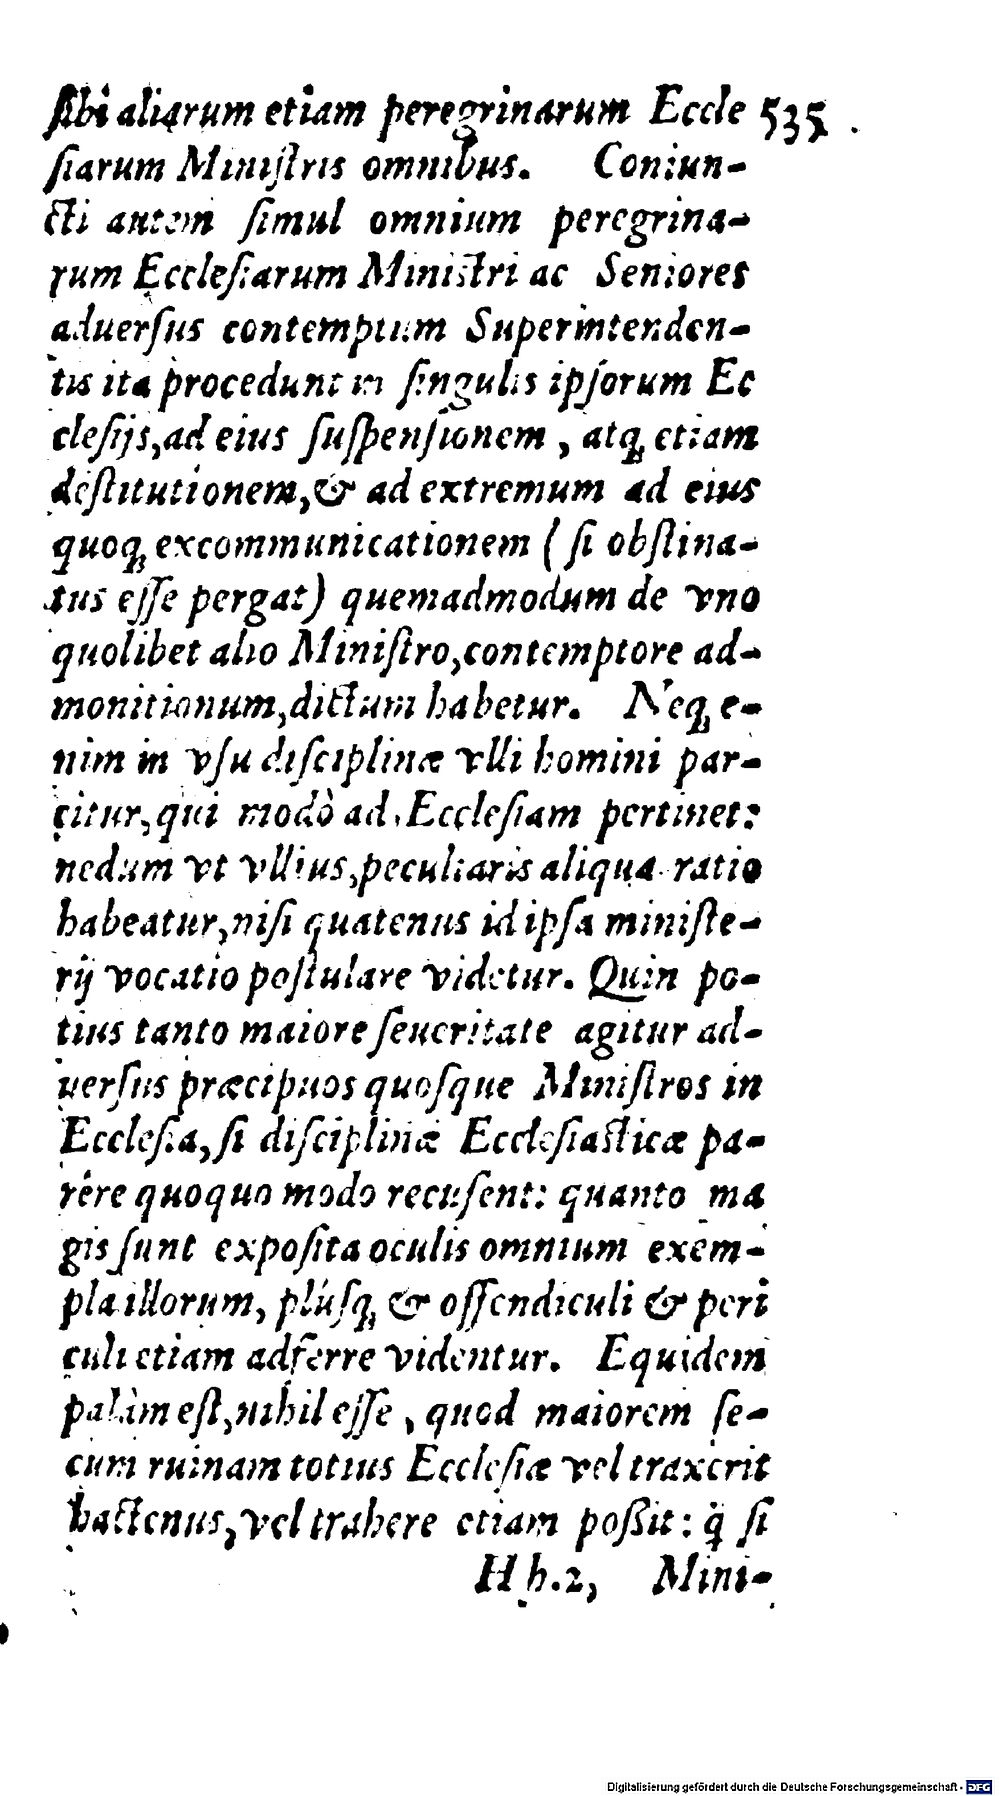 ſibi aliarum etiam peregrinarum Eccle 535
ſiarum Miniſtris omnibus. Coniun-
cti autem ſimul omnium peregrina-
rum Eccleſiarum Miniſtri ac Seniores
aduerſus contemptum Superintenden-
tis ita procedunt in ſingulis ipſorum Ec
cleſijs, ad eius ſuſpenſionem, atq; etiam
deſtitutionem, & ad extremum ad eius
quoq; excommunicationem (ſi obſtina-
tus eſſe pergat) quemadmodum de vno
quolibet alio Miniſtro, contemptore ad-
monitionum, dictum habetur. Neq; e-
nim in vſu diſciplinæ vlli homini par-
citur, qui modò ad Eccleſiam pertinet:
nedum vt vllius, peculiaris aliqua ratio
habeatur, niſi quatenus id ipſa miniſte-
rij vocatio poſtulare videtur. Quin po-
tius tanto maiore ſeueritate agitur ad-
uerſus præcipuos quoſque Miniſtros in
Eccleſia, ſi diſciplinæ Eccleſiaſticæ pa-
rêre quoquo modo recuſent: quanto ma
gis ſunt expoſita oculis omnium exem-
pla illorum, pluſq; & offendiculi & peri
culi etiam adferre videntur. Equidem
palàm eſt, nihil eſſe, quod maiorem ſe-
cum ruinam totius Eccleſiæ vel traxerit
hactenus, vel trahere etiam poßit: q̃ ſi
Hh.2, Mini-
Digitalisierung gefördert durch die Deutsche Forschungsgemeinschaft - DFG